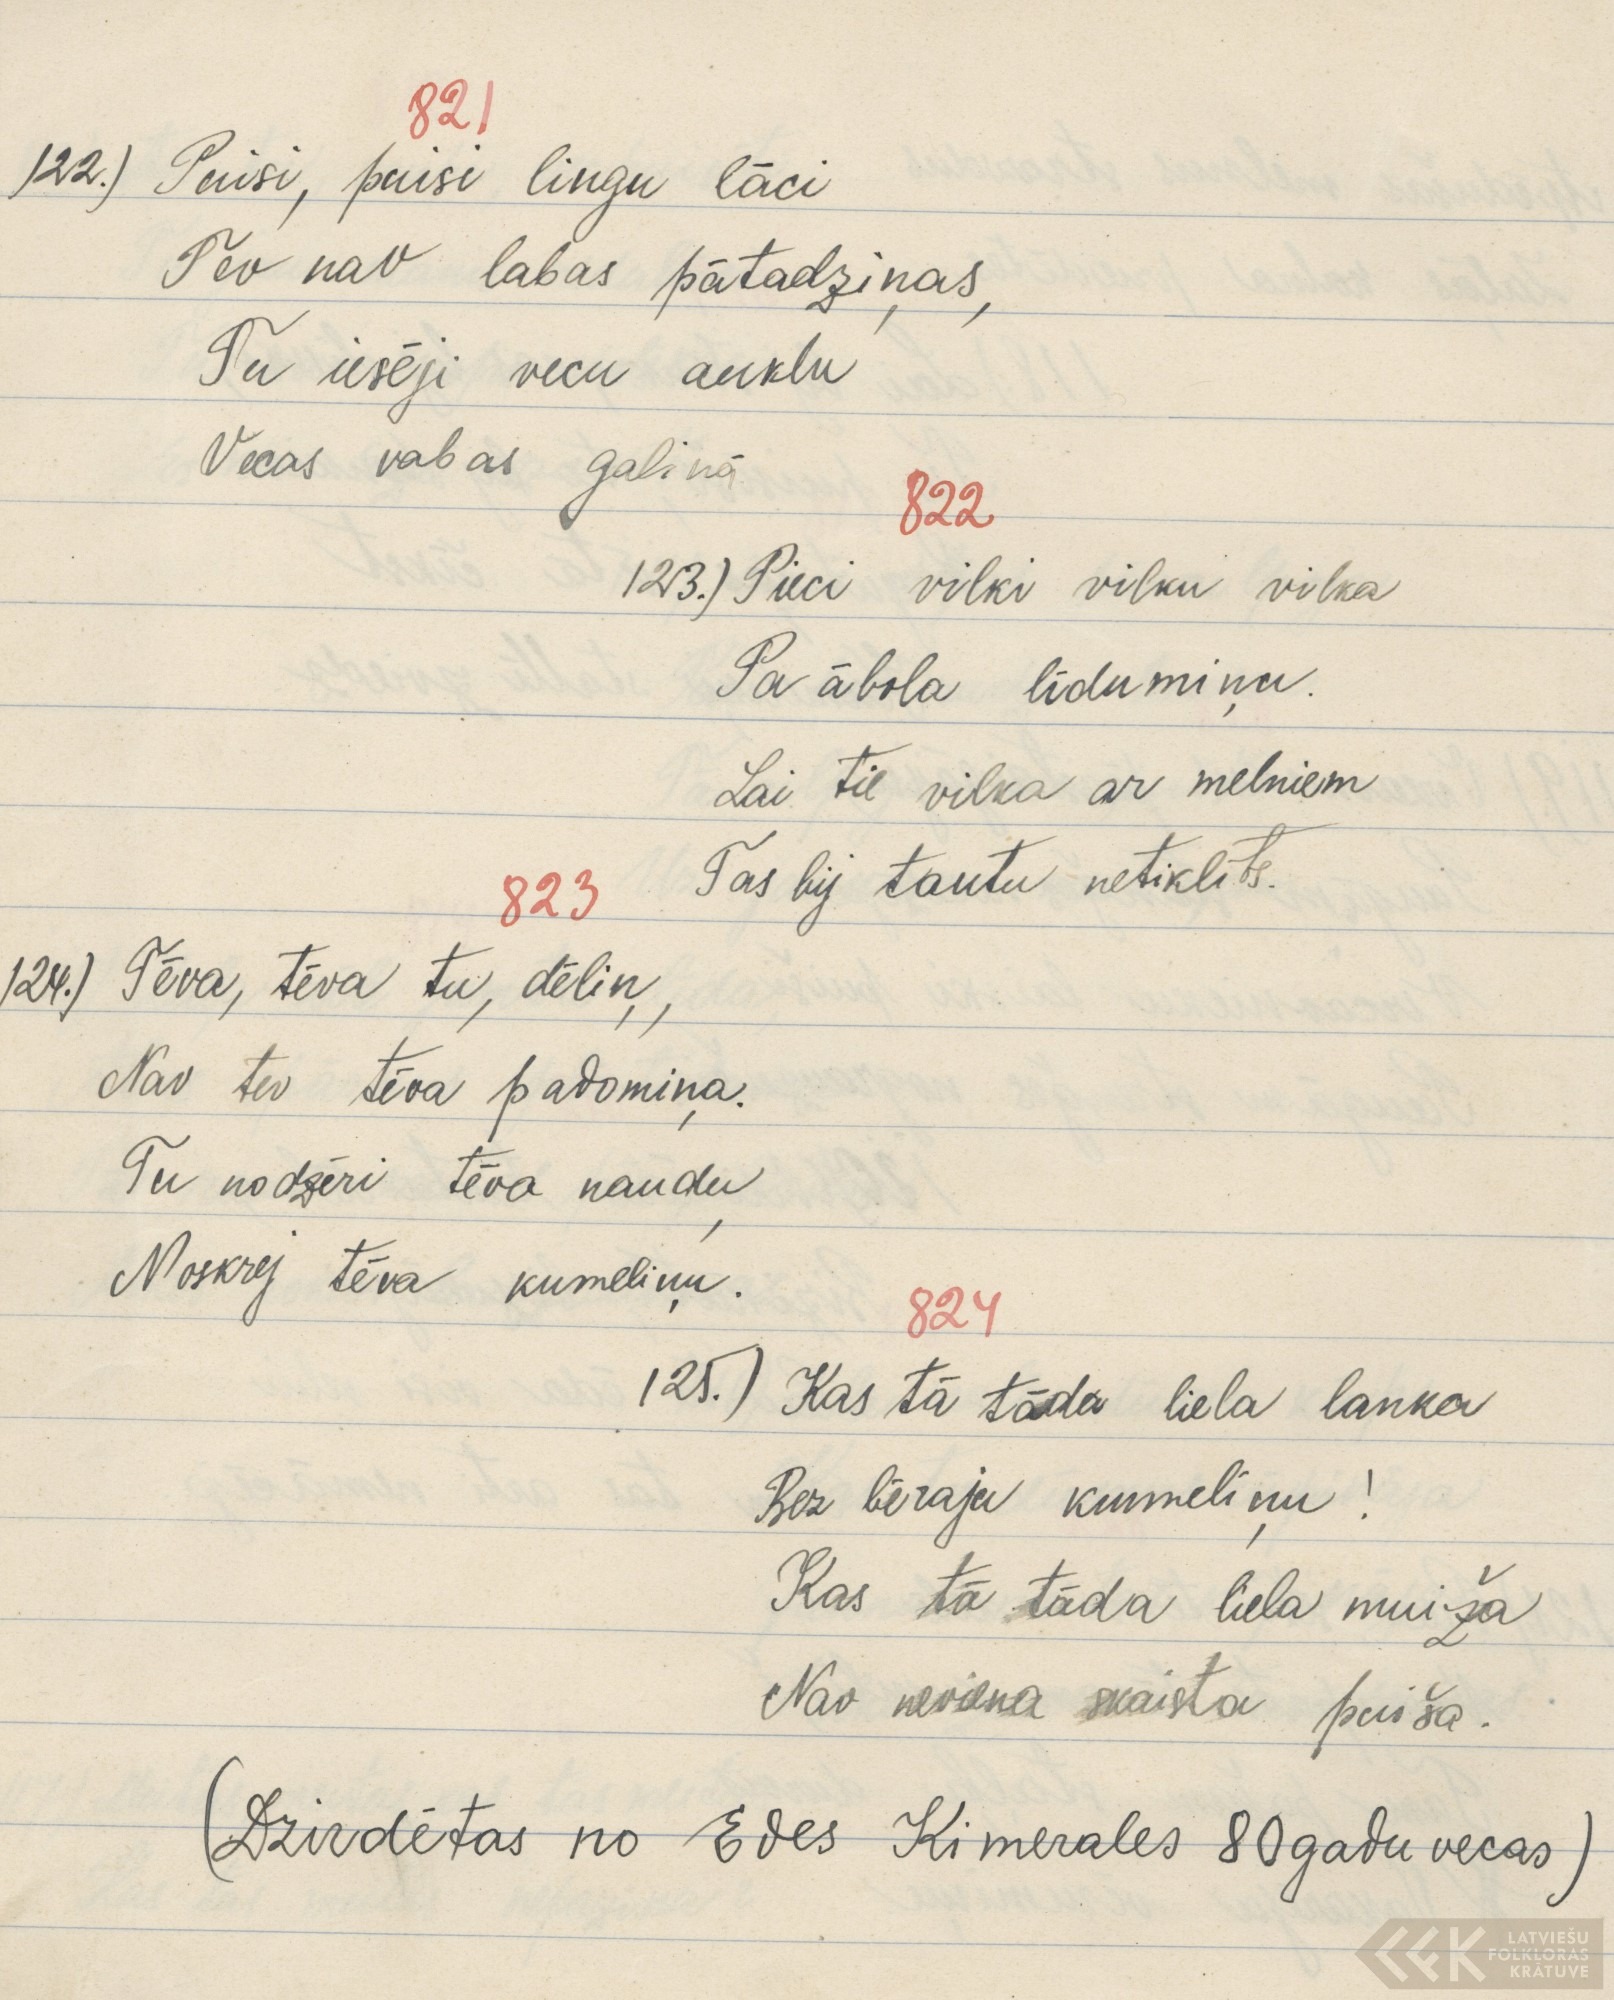 821
122.) Puisi, puisi lingu lāci
Tev nav labas pātadziņas,
Tu iesēji vecu auklu
Vecas vabas galiņā
822
123.) Pieci vilki vilku vilka
Pa ābola līdumiņu.
Lai tie vilka ar melniem
Tas bij tautu netiklīts.
823
124.) Tēva, tēva tu, dēliņ,
Nav tev tēva padomiņa.
Tu nodzēri tēva naudu,
Noskrej tēva kumeliņu.
824
125.) Kas tā tāda liela lanka
Bez bēraju kumeliņu!
Kas tā tāda liela muiža
Nav neviena skaista puiša.
(Dzirdētas no Edes Kimerales 80 gadu vecas)
LATVIEŠU
FOLKLORAS
KRĀTUVE